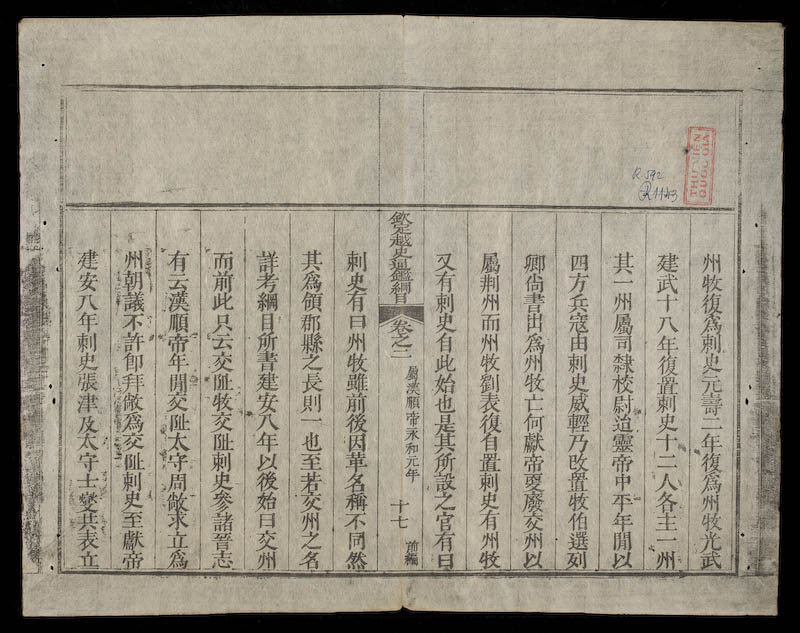 州牧復爲刺史元壽二年復爲州牧光武
建武十八年復置刺史十二人各主一州
其一州屬司隸校尉迨靈帝中平年閒以
四方兵寇由刺史威輕乃改置牧伯選列
卿尙書出爲州牧亡何獻帝更廢交州以
屬荆州而州牧劉表復自置刺史有州牧
又有刺史自此始也是其所設之官有曰
欽定越史通鑑綱目 卷之二 屬漢順帝永和元年 十七 前編
刺史有曰州牧雖前後因革名稱不同然
其爲領郡縣之長則一也至若交州之名
詳考綱目所書建安八年以後始曰交州
而前此只云交阯牧交阯刺史參諸晉志
有云漢順帝年閒交阯太守周敞求立爲
州朝議不許卽拜敞爲交阯刺史至獻帝
建安八年刺史張津及太守士燮共表立
R.592
R1143